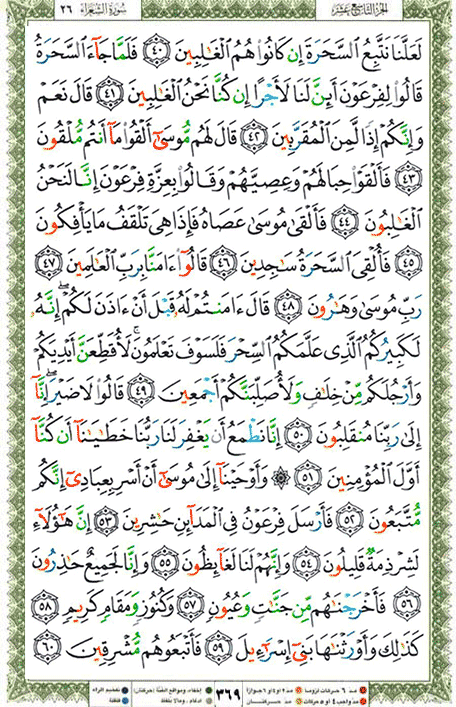 الجزء التاسع عشر
سورة الشعراء
٢٦
لَعَلَّنَا نَتَّبِعُ السَّحَرَةَ إِن كَانُوا هُمُ الْغَالِبِينَ ﴿٤٠﴾ فَلَمَّا جَاءَ السَّحَرَةُ
قَالُوا لِفِرْعَوْنَ أَئِنَّ لَنَا لَأَجْرًا إِن كُنَّا نَحْنُ الْغَالِبِينَ ﴿٤١﴾ قَالَ نَعَمْ
وَإِنَّكُمْ إِذًا لَّمِنَ الْمُقَرَّبِينَ ﴿٤٢﴾ قَالَ لَهُم مُّوسَىٰ أَلْقُوا مَا أَنتُم مُّلْقُونَ
﴿٤٣﴾ فَأَلْقَوْا حِبَالَهُمْ وَعِصِيَّهُمْ وَقَالُوا بِعِزَّةِ فِرْعَوْنَ إِنَّا لَنَحْنُ
الْغَالِبُونَ ﴿٤٤﴾ فَأَلْقَىٰ مُوسَىٰ عَصَاهُ فَإِذَا هِيَ تَلْقَفُ مَا يَأْفِكُونَ
﴿٤٥﴾ فَأُلْقِيَ السَّحَرَةُ سَاجِدِينَ ﴿٤٦﴾ قَالُوا ءَامَنَّا بِرَبِّ الْعَالَمِينَ ﴿٤٧﴾
رَبِّ مُوسَىٰ وَهَارُونَ ﴿٤٨﴾ قَالَ ءَامَنتُمْ لَهُ قَبْلَ أَنْ ءَاذَنَ لَكُمْ ۖ إِنَّهُ
لَكَبِيرُكُمُ الَّذِي عَلَّمَكُمُ السِّحْرَ فَلَسَوْفَ تَعْلَمُونَ ۚ لَأُقَطِّعَنَّ أَيْدِيَكُمْ
وَأَرْجُلَكُم مِّنْ خِلَافٍ وَلَأُصَلِّبَنَّكُمْ أَجْمَعِينَ ﴿٤٩﴾ قَالُوا لَا ضَيْرَ ۖ إِنَّا
إِلَىٰ رَبِّنَا مُنقَلِبُونَ ﴿٥٠﴾ إِنَّا نَطْمَعُ أَن يَغْفِرَ لَنَا رَبُّنَا خَطَايَانَا أَن كُنَّا
أَوَّلَ الْمُؤْمِنِينَ ﴿٥١﴾ ۞ وَأَوْحَيْنَا إِلَىٰ مُوسَىٰ أَنْ أَسْرِ بِعِبَادِي إِنَّكُم
مُّتَّبَعُونَ ﴿٥٢﴾ فَأَرْسَلَ فِرْعَوْنُ فِي الْمَدَائِنِ حَاشِرِينَ ﴿٥٣﴾ إِنَّ هَٰؤُلَاءِ
لَشِرْذِمَةٌ قَلِيلُونَ ﴿٥٤﴾ وَإِنَّهُمْ لَنَا لَغَائِظُونَ ﴿٥٥﴾ وَإِنَّا لَجَمِيعٌ حَاذِرُونَ
﴿٥٦﴾ فَأَخْرَجْنَاهُم مِّن جَنَّاتٍ وَعُيُونٍ ﴿٥٧﴾ وَكُنُوزٍ وَمَقَامٍ كَرِيمٍ ﴿٥٨﴾
كَذَٰلِكَ وَأَوْرَثْنَاهَا بَنِي إِسْرَائِيلَ ﴿٥٩﴾ فَأَتْبَعُوهُم مُّشْرِقِينَ ﴿٦٠﴾
مد ٦ حركات لزوما مد ٢ أو ٤ أو ٦ جوازا
إخفاء، ومواقع الغنة (حركتان) تفخيم الراء
مد واجب ٤ أو ٥ حركات مد حركتان
إدغام، وما لا يلفظ قلقلة
٣٦٩